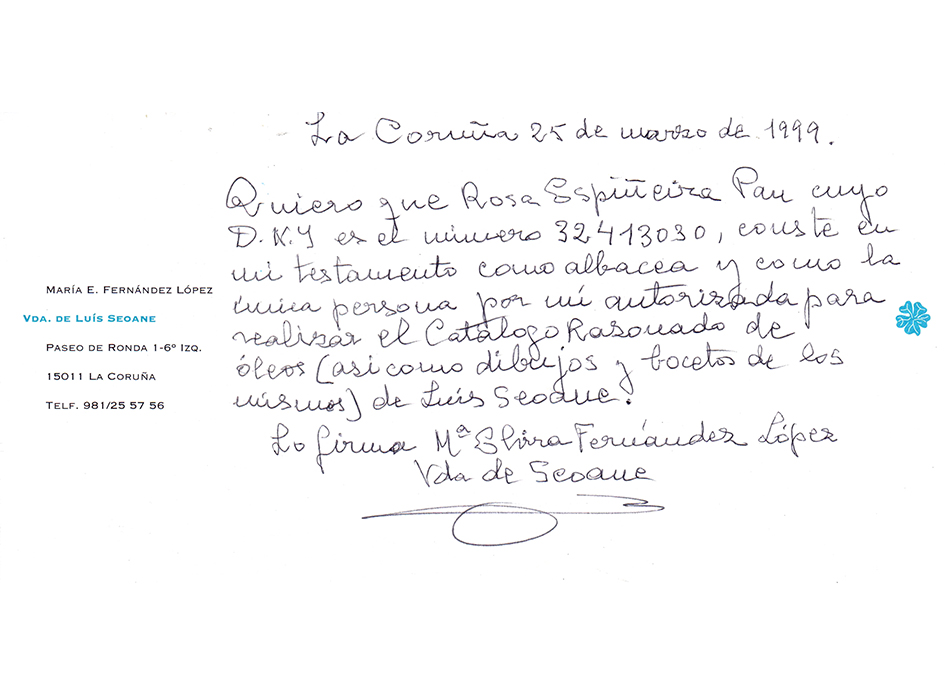 La Coruña 25 de marzo de 1999.
Quiero que Rosa Espiñeira Pan cuyo
D.N.Y es el número 32413030, conste en
mi testamento como albacea y como la
única persona por mi autorizada para
realizar el Catálogo Rasonado de
óleos (asi como dibujos y bocetos de los
mismos) de Luís Seoane.
Lo firma Mª Elvira Fernández López
Vda de Seoane
MARÍA E. FERNÁNDEZ LÓPEZ
VDA. DE LUÍS SEOANE
PASEO DE RONDA 1-6º IZQ.
15011 LA CORUÑA
TELF. 981/25 57 56